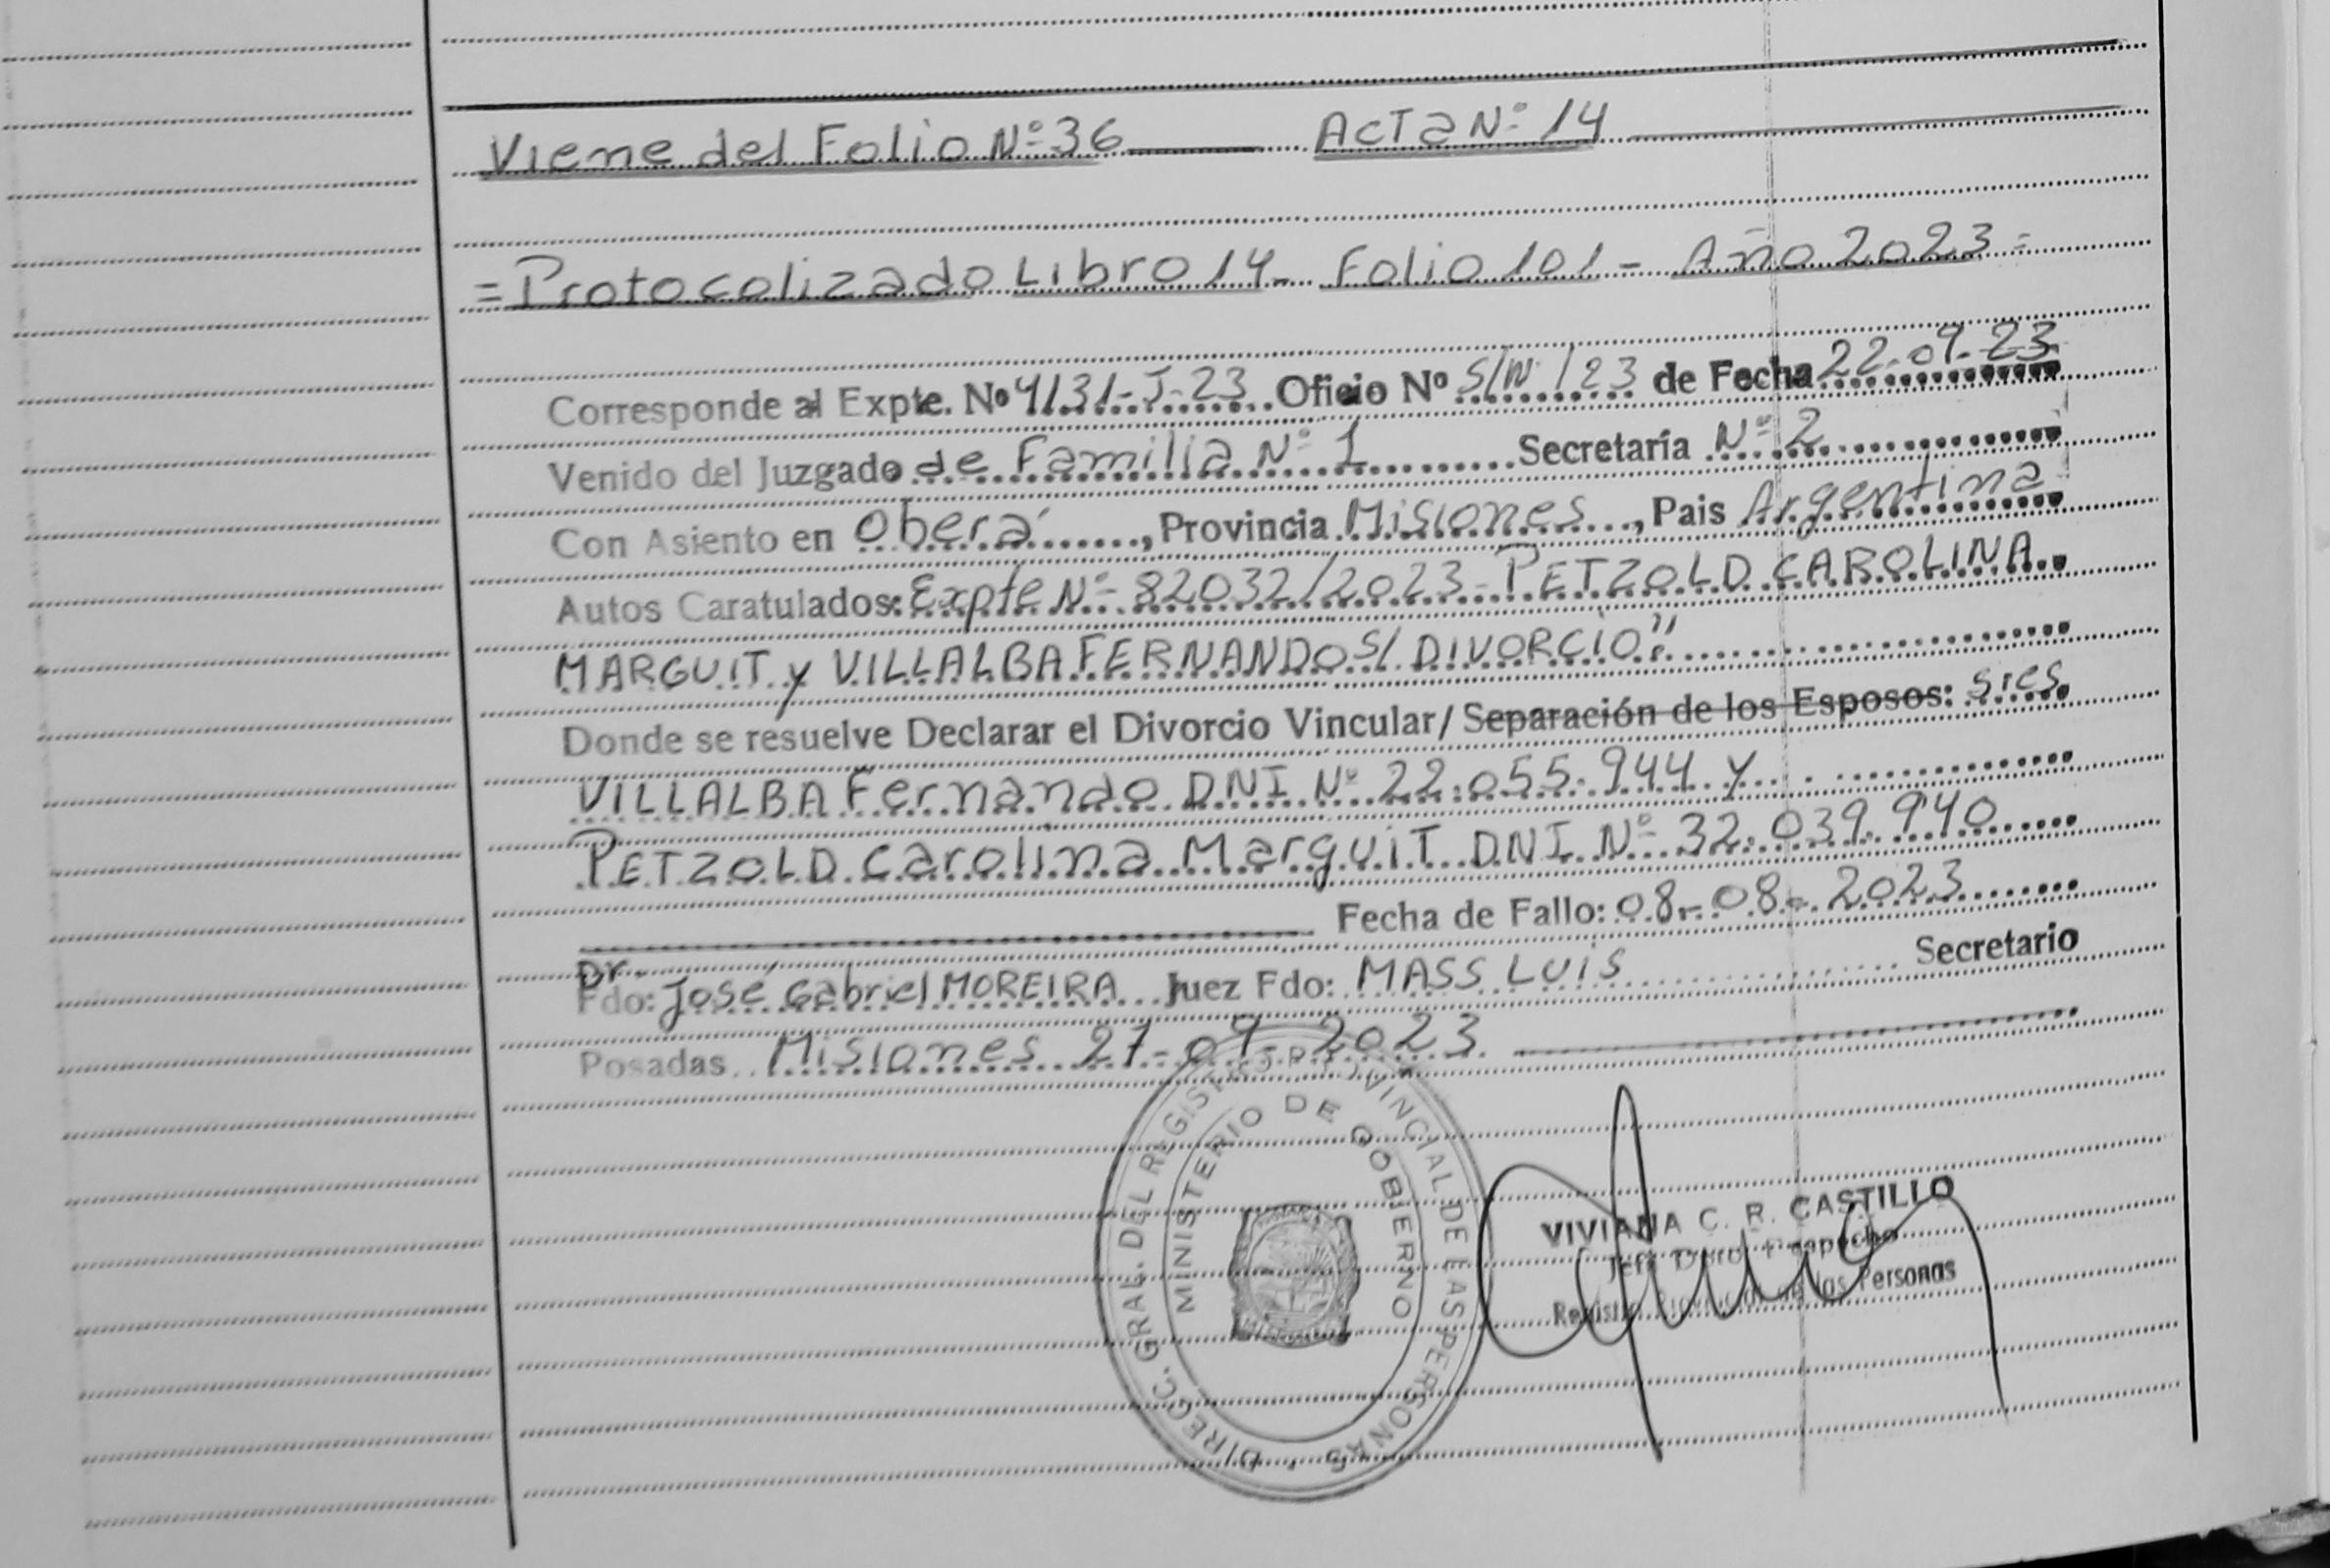 Viene del Folio Nº 36 Acta Nº 14
= Protocolizado Libro 14 - Folio 101 - Año 2023 =
Corresponde al Expte. Nº 4131-J-23 Oficio Nº S/N /23 de Fecha 22-09-23
Venido del Juzgado de Familia Nº 1 Secretaría Nº 2
Con Asiento en Oberá, Provincia Misiones, Pais Argentina
Autos Caratulados: Expte Nº 82032/2023 - PETZOLD CAROLINA
MARGUIT y VILLALBA FERNANDO S/ DIVORCIO"
Donde se resuelve Declarar el Divorcio Vincular/ Separación de los Esposos: sres
VILLALBA Fernando DNI Nº 22.055.944 y
PETZOLD Carolina Marguit DNI Nº 32.039.940
Fecha de Fallo: 08-08-2023
Dr.
Fdo: José Gabriel MOREIRA Juez Fdo: MASS LUIS Secretario
Posadas Misiones 27-09-2023
DIRECC. GRAL. DEL REGISTRO PROVINCIAL DE LAS PERSONAS
MINISTERIO DE GOBIERNO
VIVIANA C. R. CASTILLO
Jefe Dpto. Despacho
Registro Provincial de las Personas